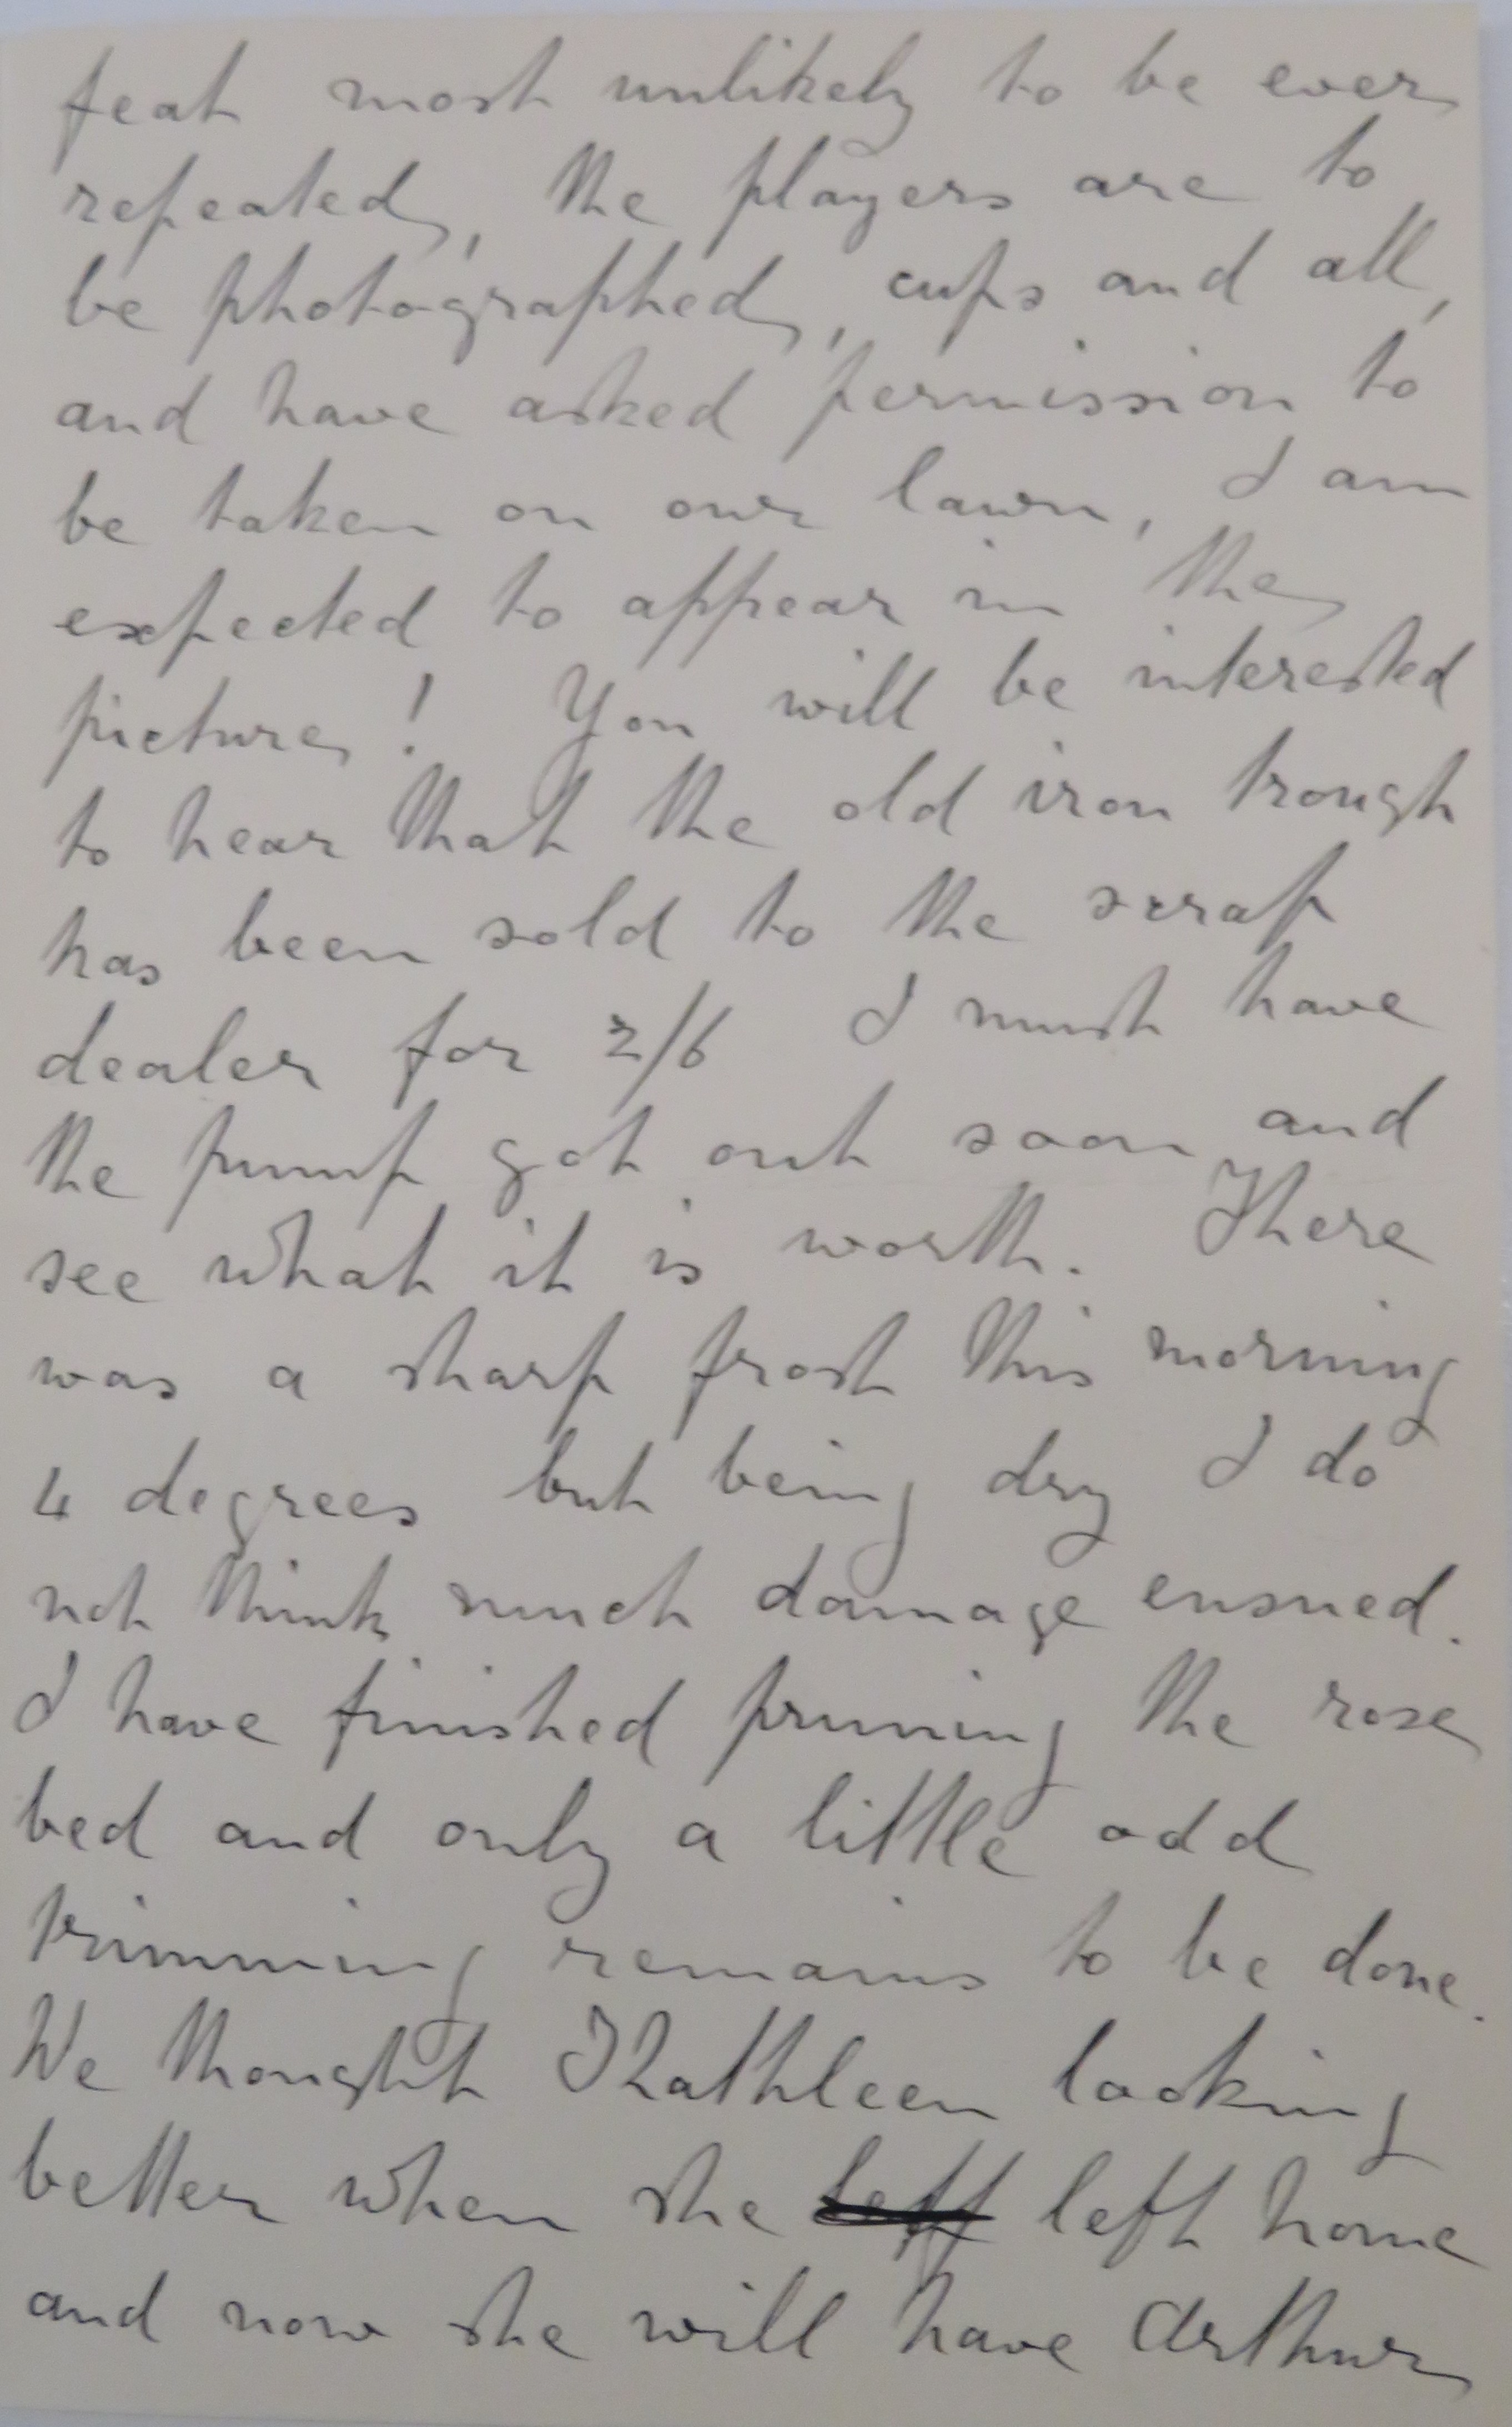 feat most unlikely to be ever
repeated, the players are to
be photographed, cups and all,
and have asked permission to
be taken on our lawn, I am
expected to appear in the
picture! You will be interested
to hear that the old iron trough
has been sold to the scrap
dealer for 2/6 I must have
the pump got out soon and
see what it is worth. There
was a sharp frost this morning
4 degrees but being dry I do
not think much damage ensued.
I have finished pruning the rose
bed and only a little odd
trimming remains to be done.
We thought Kathleen looking
better when she left left home
and now she will have Arthur